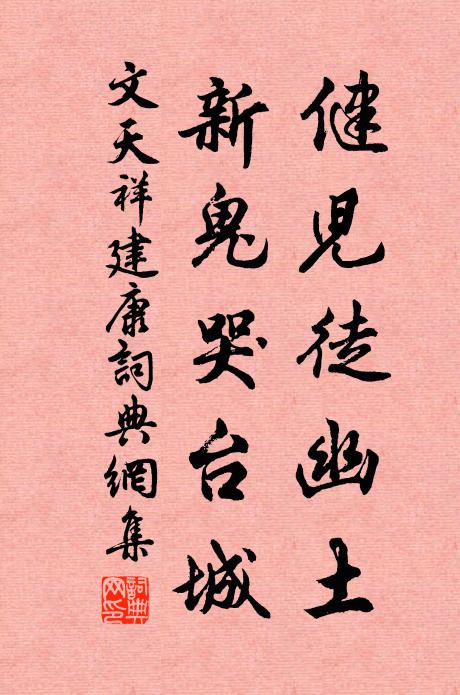 健兒徒幽土
新鬼哭台城
文天祥建康詞典網集
詞典網印